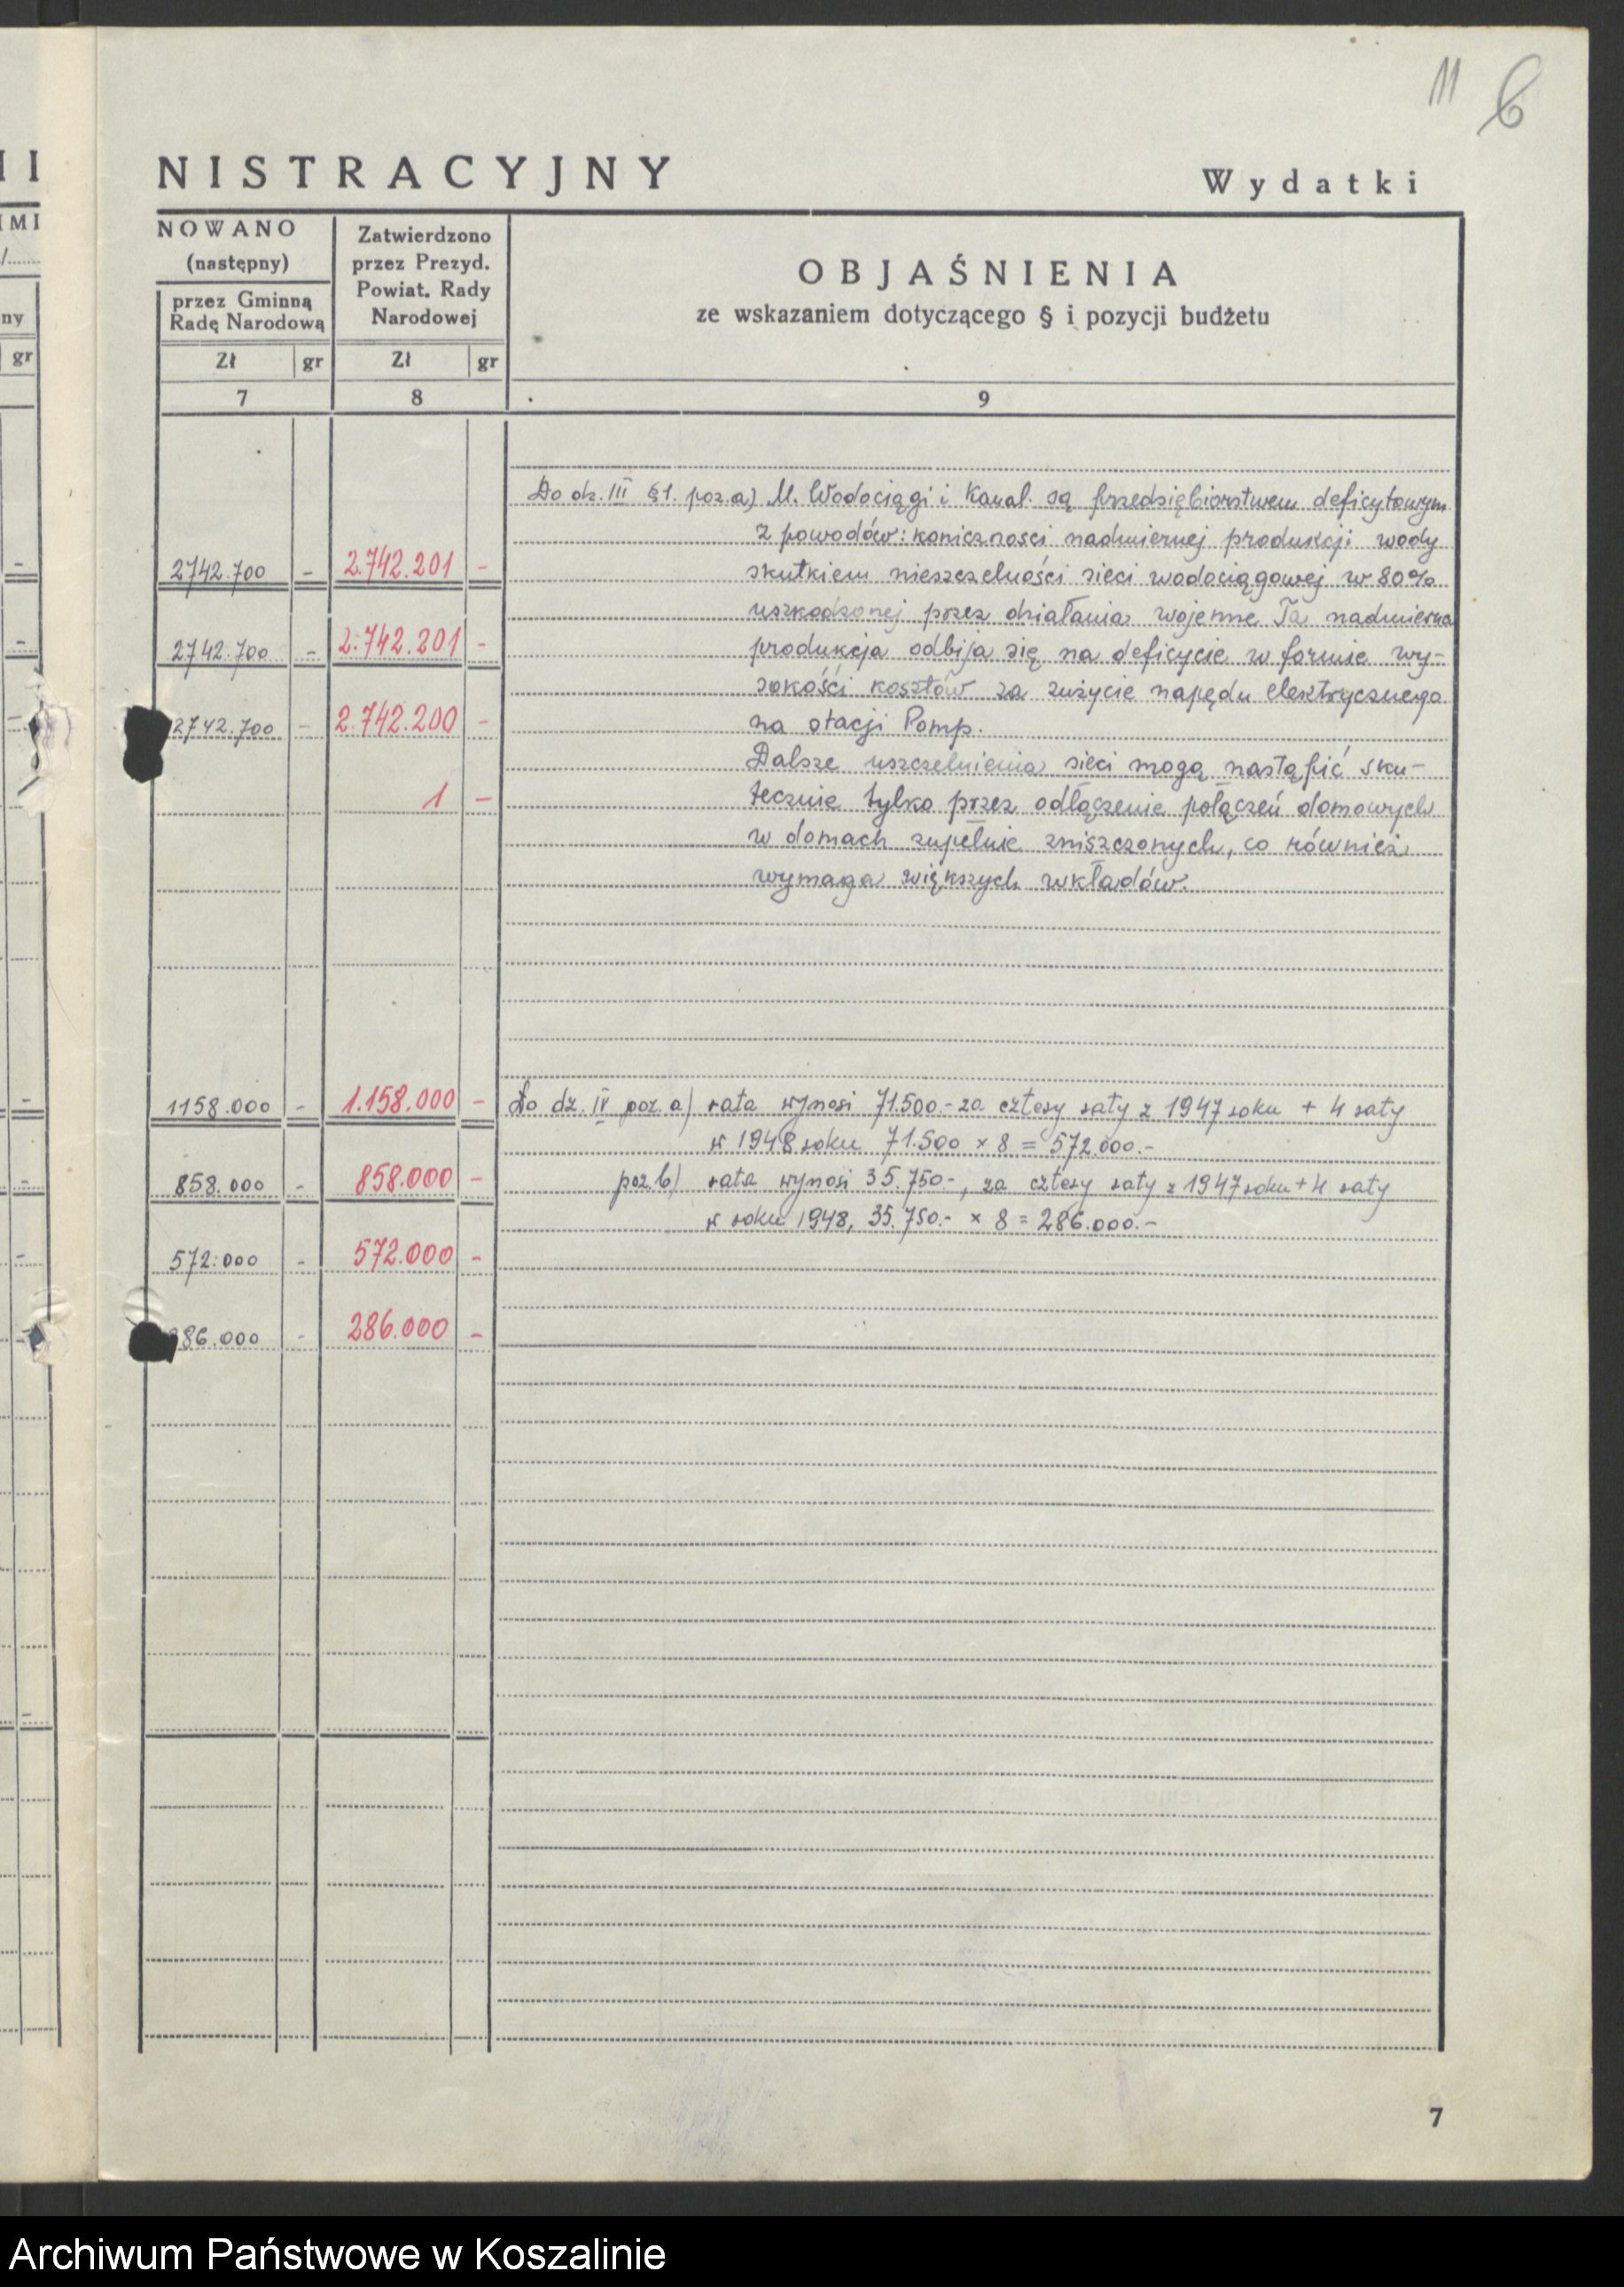 11 6
NISTRACYJNY
Wydatki
II
IMI
/........
ny
gr
NOWANO
(następny)
przez Gminną
Radę Narodową
Zł gr
7
Zatwierdzono
przez Prezyd.
Powiat. Rady
Narodowej
Zł gr
8
OBJAŚNIENIA
ze wskazaniem dotyczącego § i pozycji budżetu
9
Do dz. III §1. poz. a) M. Wodociągi i Kanal. są przedsiębiorstwem deficytowym
z powodów: koniczności nadmiernej produkcji wody
2742.700 - 2.742.201 - skutkiem nieszczelności sieci wodociągowej w 80%
uszkodzonej przez działania wojenne Ta nadmierna
2742.700 - 2.742.201 - produkcja odbija się na deficycie w formie wy-
sokości kosztów za zużycie napędu elektrycznego
2742.700 - 2.742.200 - na stacji Pomp.
Dalsze uszczelnienia sieci mogą nastąpić sku-
1 - tecznie tylko przez odłączenie połączeń domowych
w domach zupełnie zniszczonych, co również
wymaga większych wkładów.
1158.000 - 1.158.000 - Do dz. IV poz. a) rata wynosi 71.500.- za cztery raty z 1947 roku + 4 raty
w 1948 roku 71.500 × 8 = 572.000.-
858.000 - 858.000 - poz. b) rata wynosi 35.750.-, za cztery raty z 1947 roku + 4 raty
w roku 1948, 35.750.- × 8 = 286.000.-
572.000 - 572.000 -
86.000 - 286.000 -
7
Archiwum Państwowe w Koszalinie